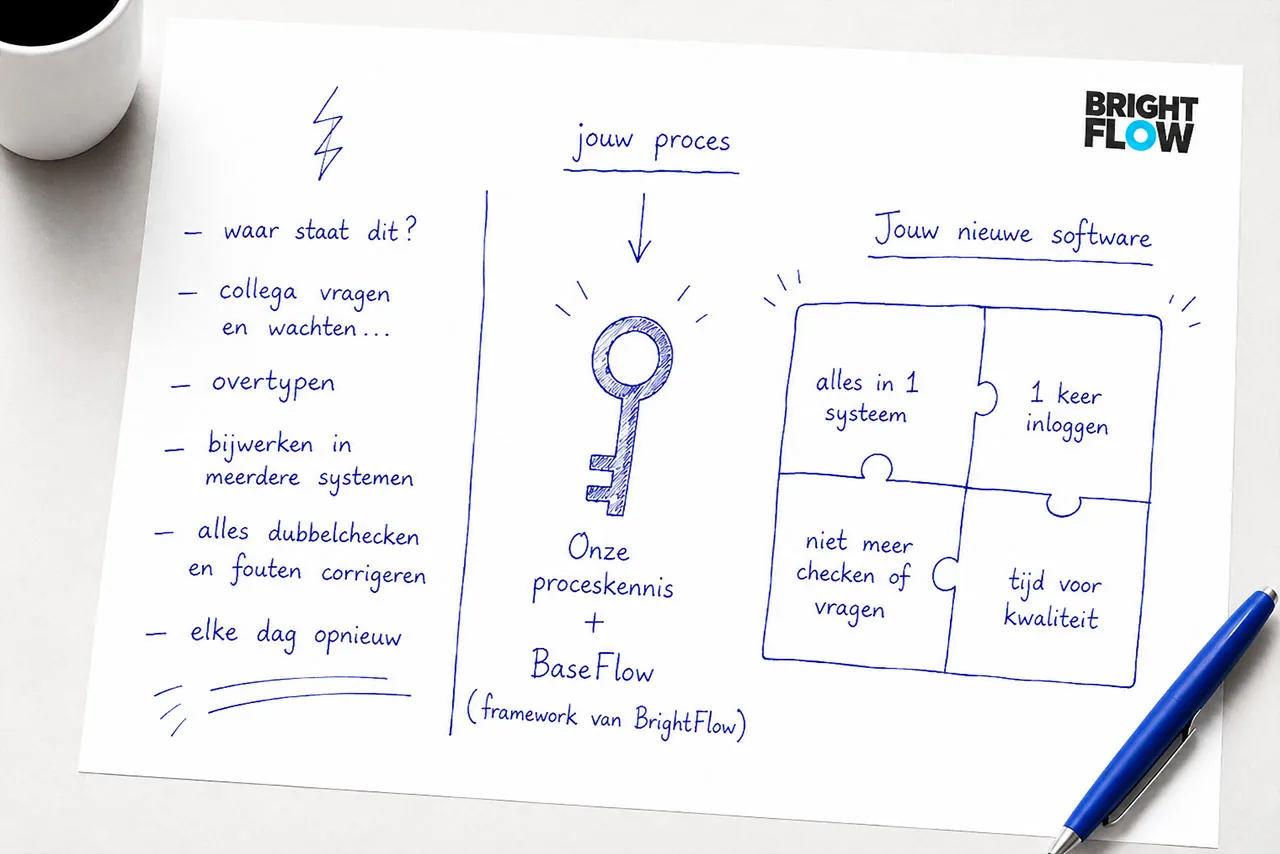 – waar staat dit?
– collega vragen
en wachten...
– overtypen
– bijwerken in
meerdere systemen
– alles dubbelchecken
en fouten corrigeren
– elke dag opnieuw
jouw proces
Onze
proceskennis
+
BaseFlow
(framework van BrightFlow)
BRIGHT
FLOW
Jouw nieuwe software
alles in 1
systeem
1 keer
inloggen
niet meer
checken of
vragen
tijd voor
kwaliteit